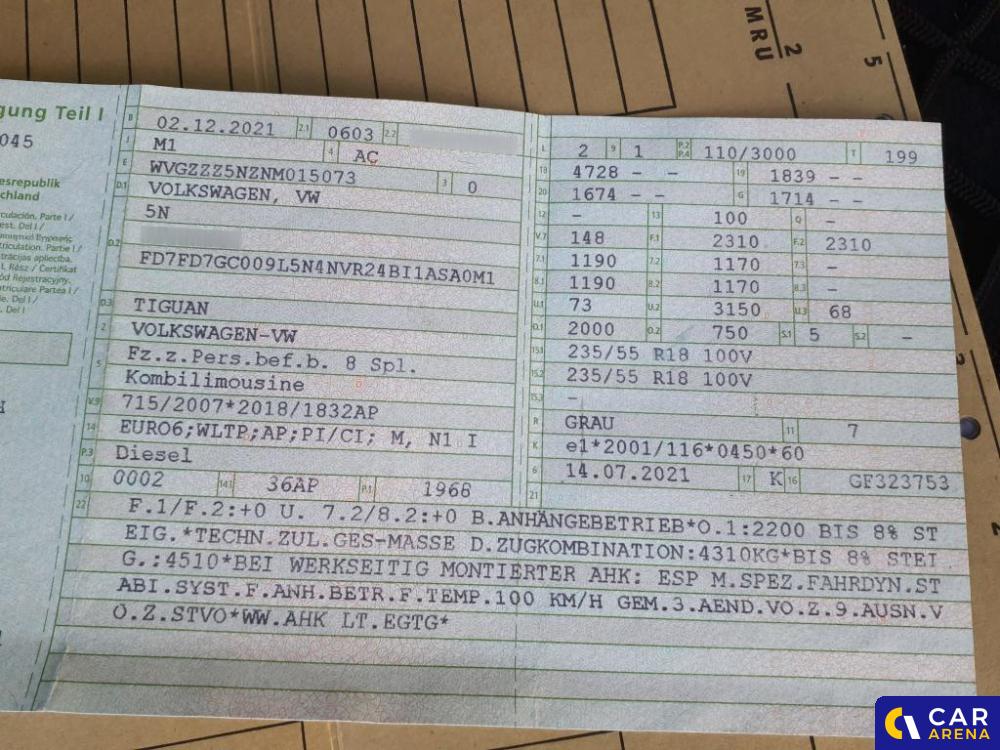 MRU
2
2
5
gung Teil I
045
esrepublik
chland
B 02.12.2021 2.1 0603 2.2
J M1 4 AC
E WVGZZZ5NZNM015073 3 0
D.1 VOLKSWAGEN, VW
5N
D.2
FD7FD7GC009L5N4NVR24BI1ASA0M1
D.3 TIGUAN
2 VOLKSWAGEN-VW
5 Fz.z.Pers.bef.b. 8 Spl.
Kombilimousine
V.9 715/2007*2018/1832AP
14 EURO6;WLTP;AP;PI/CI; M, N1 I
P.3 Diesel
10 0002 14.1 36AP P.1 1968
L 2 9 1 P.2 P.4 110/3000 T 199
18 4728 - - 19 1839 - -
20 1674 - - G 1714 - -
12 - 13 100 Q -
V.7 148 F.1 2310 F.2 2310
7.1 1190 7.2 1170 7.3 -
8.1 1190 8.2 1170 8.3 -
U.1 73 U.2 3150 U.3 68
O.1 2000 O.2 750 S.1 5 S.2 -
15.1 235/55 R18 100V
15.2 235/55 R18 100V
15.3 -
R GRAU 11 7
K e1*2001/116*0450*60
6 14.07.2021 17 K 16 GF323753
21
22 F.1/F.2:+0 U. 7.2/8.2:+0 B.ANHÄNGEBETRIEB*O.1:2200 BIS 8% ST
EIG.*TECHN.ZUL.GES-MASSE D.ZUGKOMBINATION:4310KG*BIS 8% STEI
G.:4510*BEI WERKSEITIG MONTIERTER AHK: ESP M.SPEZ.FAHRDYN.ST
ABI.SYST.F.ANH.BETR.F.TEMP.100 KM/H GEM.3.AEND.VO.Z.9.AUSN.V
O.Z.STVO*WW.AHK LT.EGTG*
CAR
ARENA